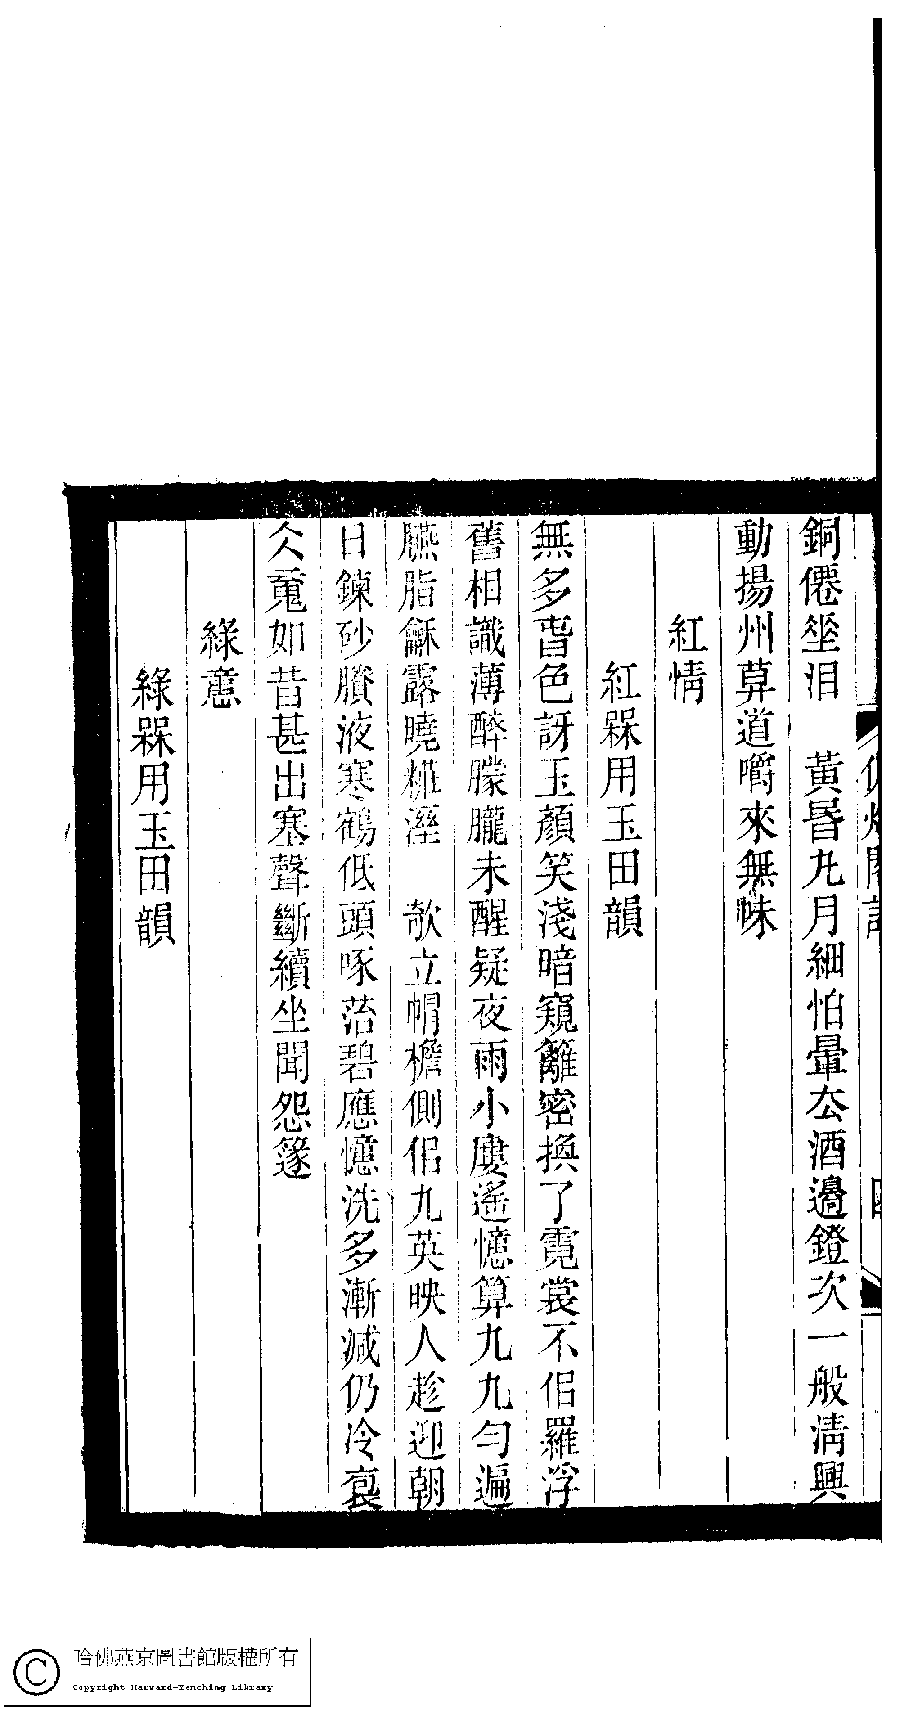 銅僊坐泪　黃昏九月細怕暈厺酒邊鐙次一般淸興
動揚州算道嚼來無味
紅情
紅槑用玉田韻
無多春色訝玉顏笑淺暗窺籬密換了霓裳不侣羅浮
舊相識薄醉朦朧未醒疑夜雨小廔遙憶算九九勻遍
臙脂龢露曉糚溼　欹立帽檐側侣九英映人趁迎朝
日鍊砂賸液寒鶴低頭啄苔碧應憶洗多漸減仍冷裛
仌䰟如昔甚出塞聲斷續坐聞怨篴
綠意
綠槑用玉田韻
四
哈佛燕京圖書館版權所有
Copyright Harvard-Yenching Library